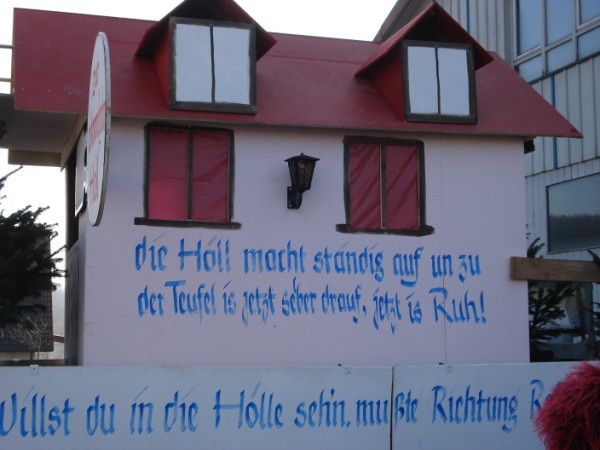 die Höll macht ständig auf un zu
der Teufel is jetzt selber drauf, jetzt is Ruh!
Willst du in die Hölle seh'n, mußte Richtung